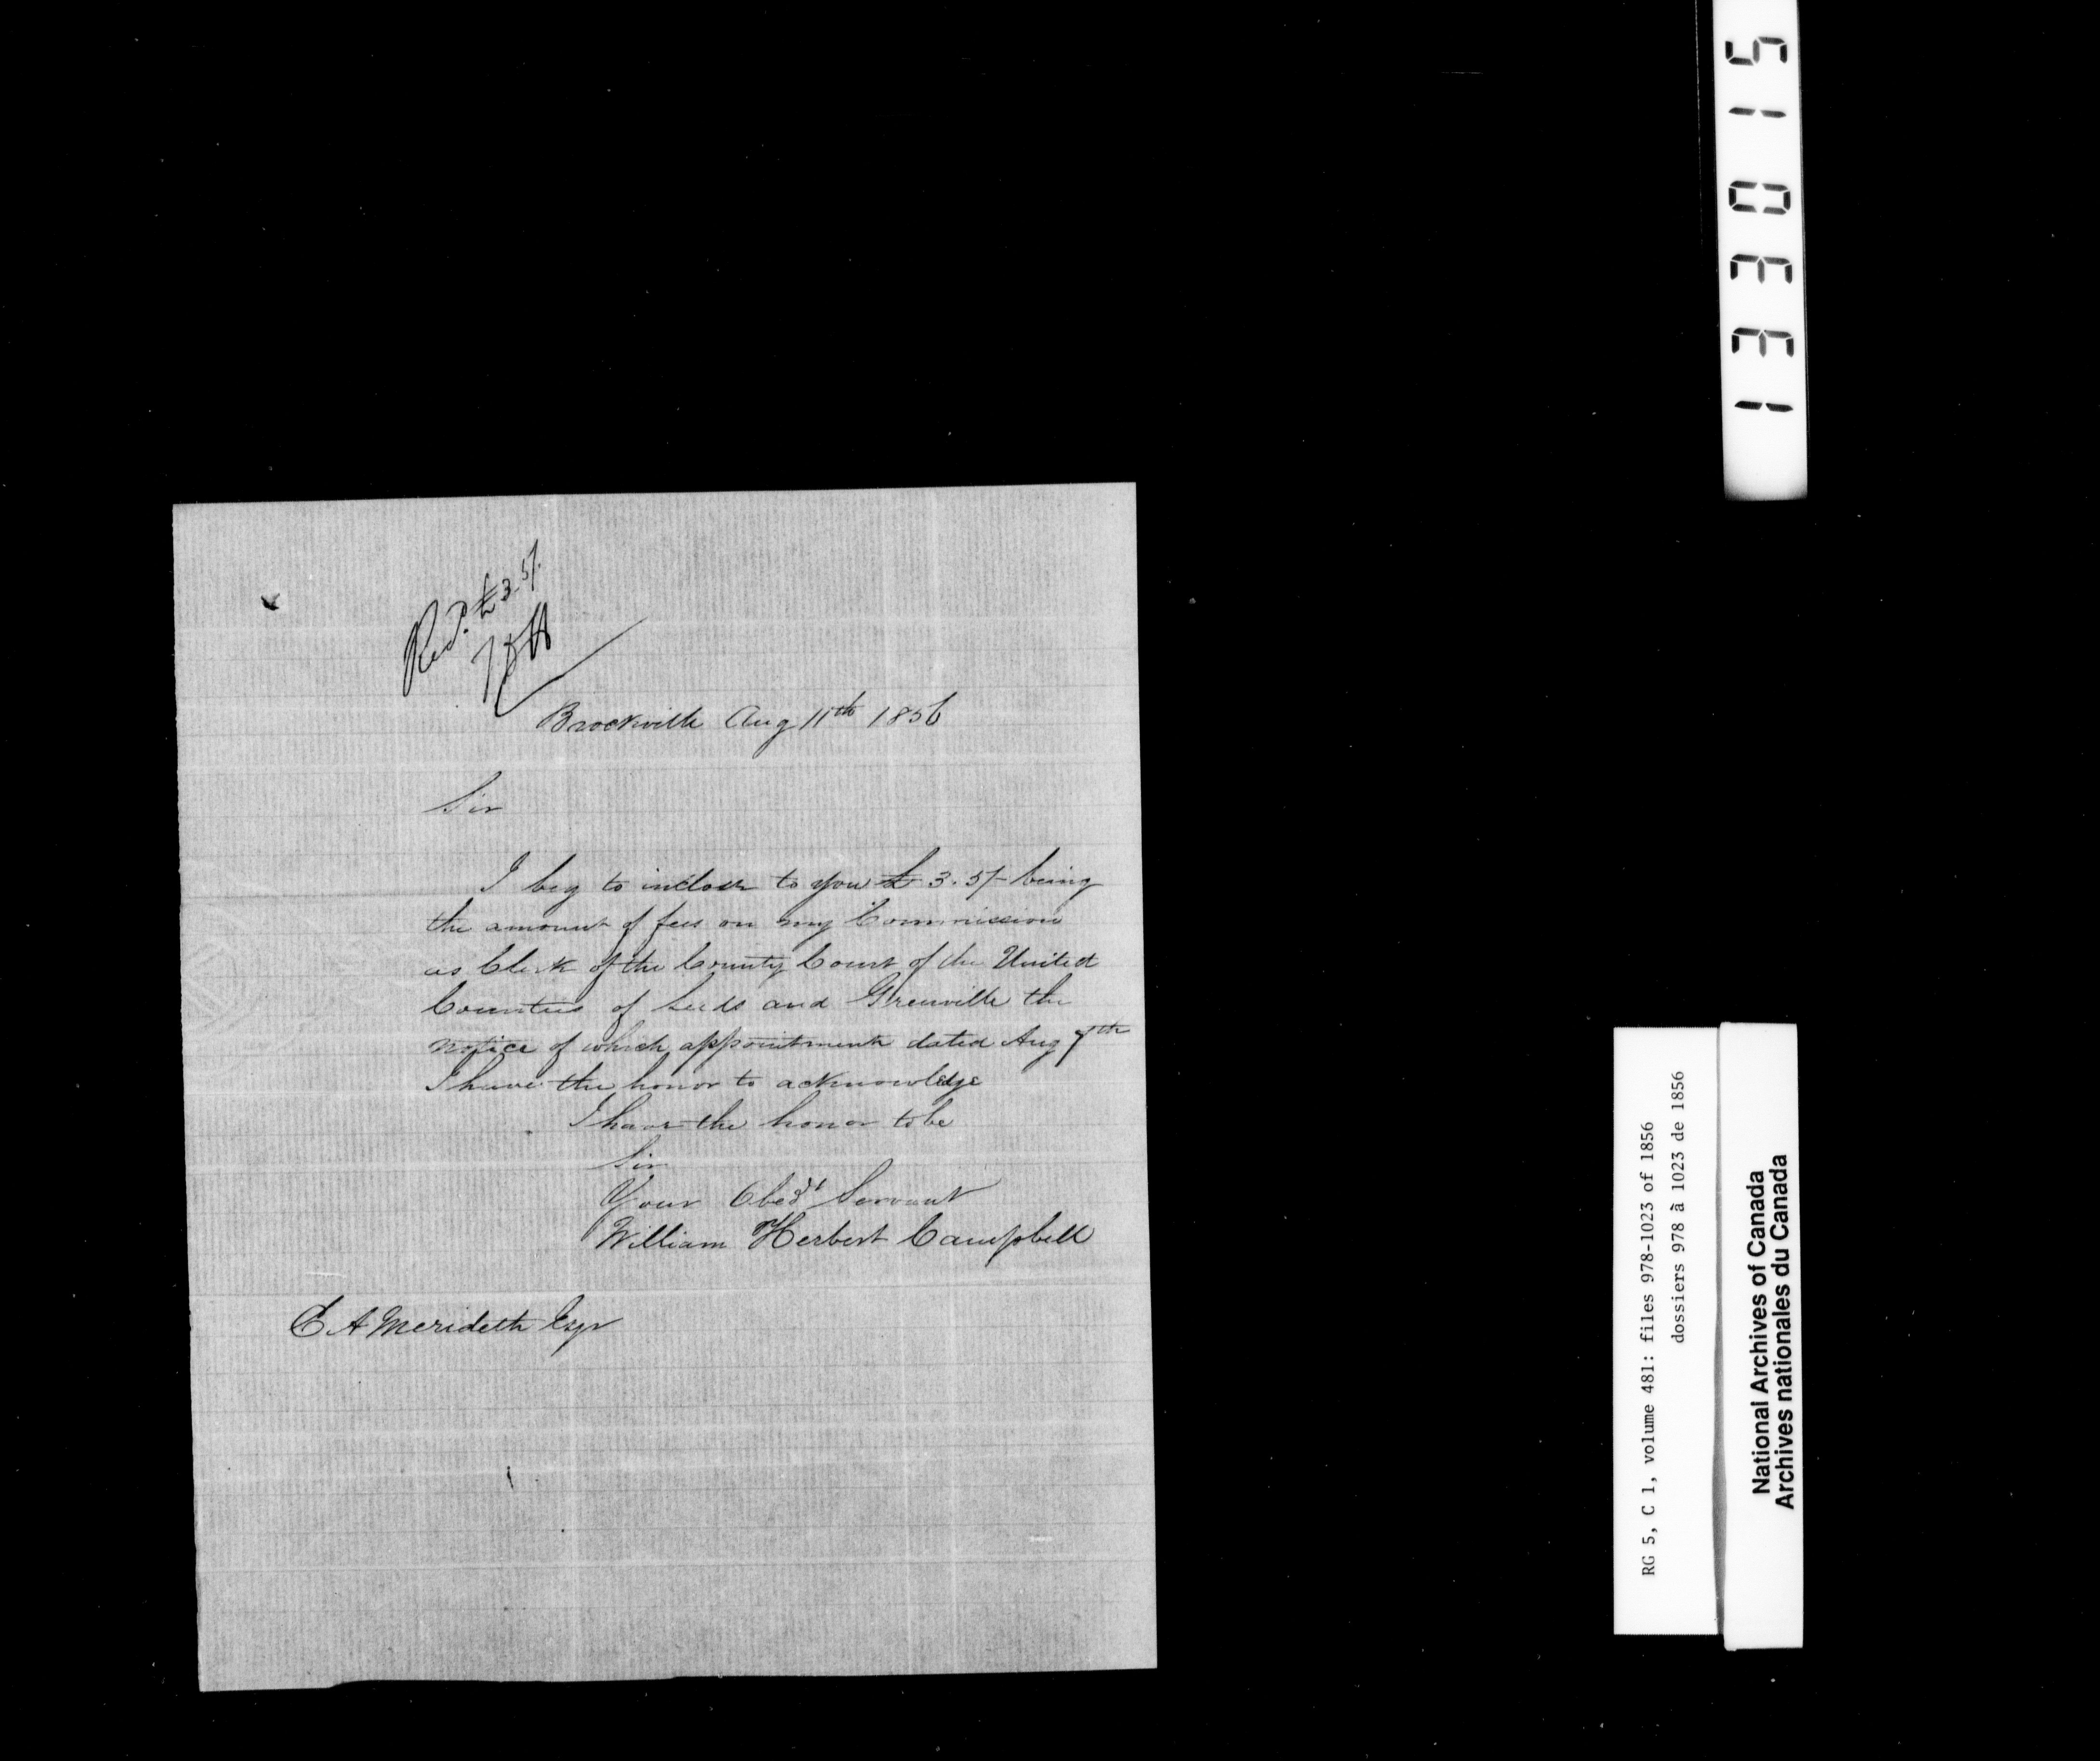 Recd. £3.5/.
Brockville Aug 11th 1856
Sir
I beg to inclose to you £3.5/- being
the amount of fees on my Commission
as Clerk of the County Court of the United
Counties of Leeds and Grenville the
notice of which appointment dated Aug 7th
I have the honor to acknowledge
I have the honor to be
Sir
Your Obedt Servant
William Herbert Campbell
E A Merideth Esqr
133015
RG 5, C 1, volume 481: files 978-1023 of 1856
dossiers 978 à 1023 de 1856
National Archives of Canada
Archives nationales du Canada